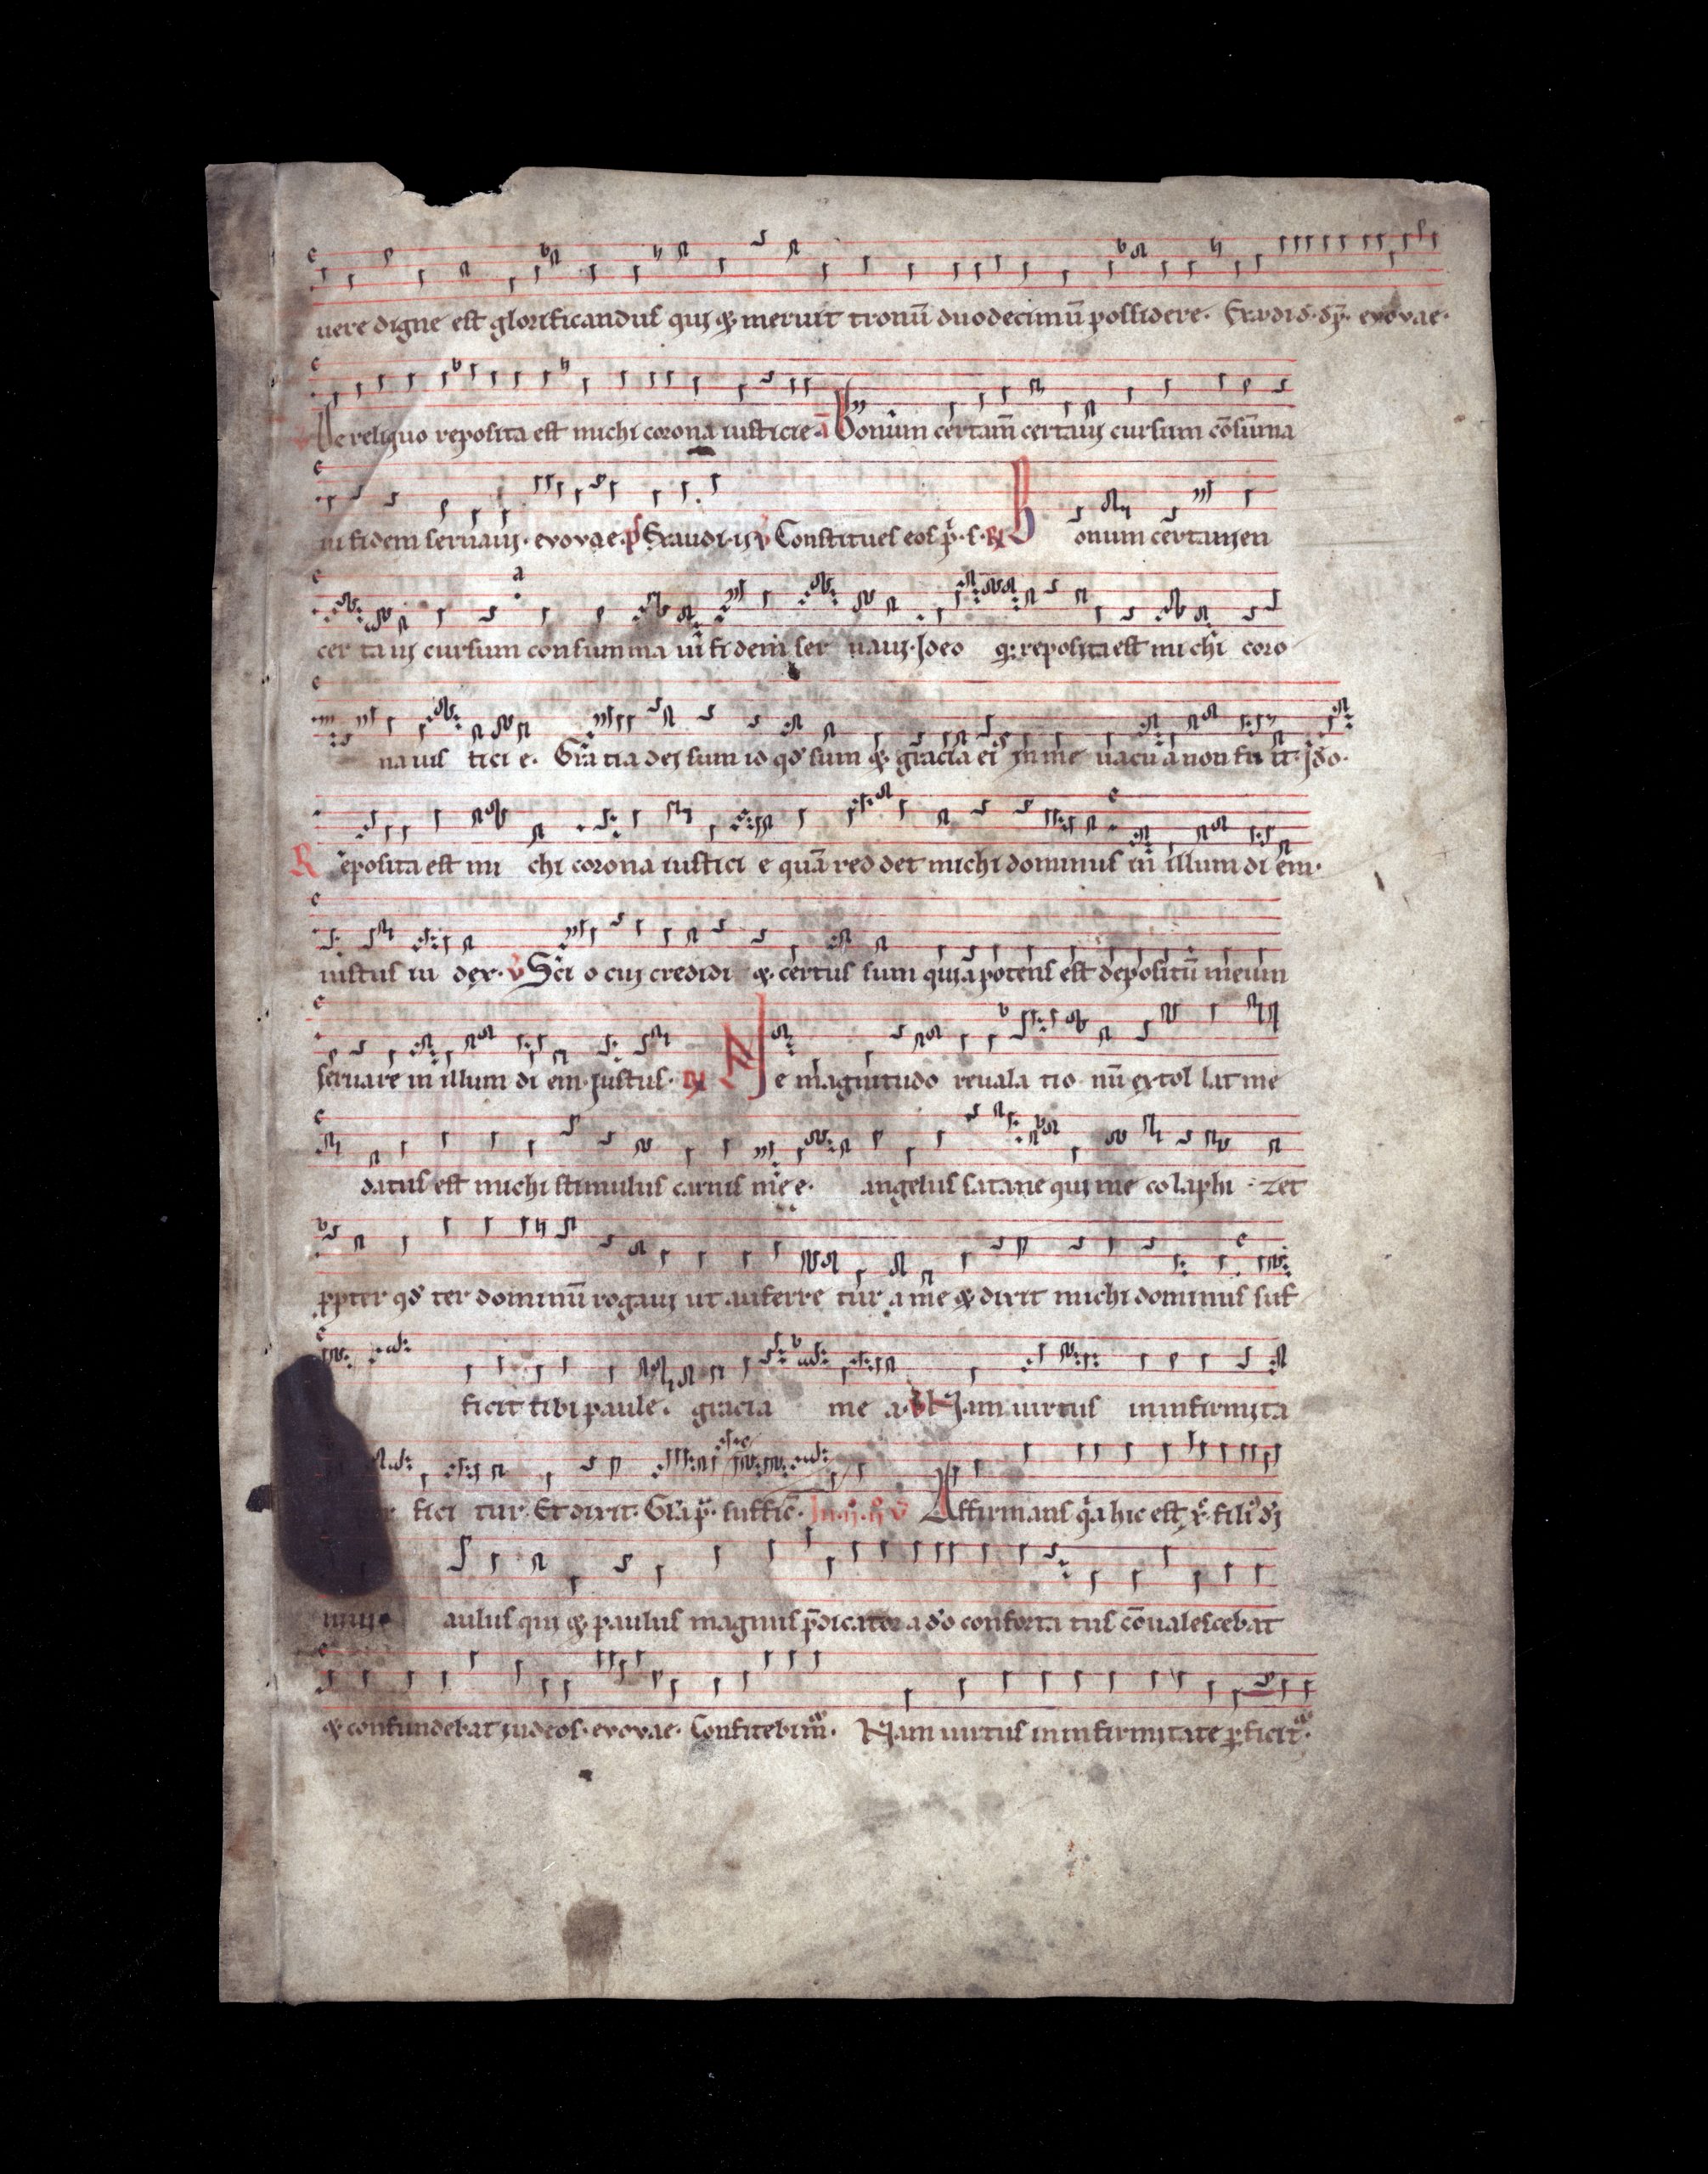 uere digne est glorificandus qui & meruit tronū duodecimū possidere. Exaudi d. dp̄. evovae.
De reliquo reposita est michi corona iusticie ā Bonum certam̄ certaui cursum cōsūma
ui fidem seruaui. evovae. p̄ Exaudi. ij v̄ Constitues eos p̄. s. ℟ Bonum certamen
cer taui cursum consumma ui fidem ser uaui. Ideo q: reposita est mi chi coro
na ius tici e. Gr̄a tia dei sum id qd̄ sum & gracia ei' in me uacu a non fu it. Ido.
R eposita est mi chi corona iustici e quā red det michi dominus in illum di em.
iustus iu dex. v̄ Sci o cui credidi & certus sum quia potens est depositū meum
seruare in illum di em. Iustus. ℟ Ne magnitudo reuala tio nū extol lat me
datus est michi stimulus carnis me e. angelus satane qui me colaphi zet
ꝓpter qd̄ ter dominū rogaui ut auferre tur a me & dixit michi dominus suf
ficit tibi paule. gracia me a. v̄ Nam uirtus in infirmita
fici tur. Et dixit. Gr̄a p̄. suffic̄. In. ij. Affirmans qa hic est x̄. fili' di
aulus qui & paulus magnus p̄dicator a dō conforta tus cōualescebat
& confundebat iudeos. evovae. Confitebim̄. Nam uirtus in infirmitate ꝑficit'.